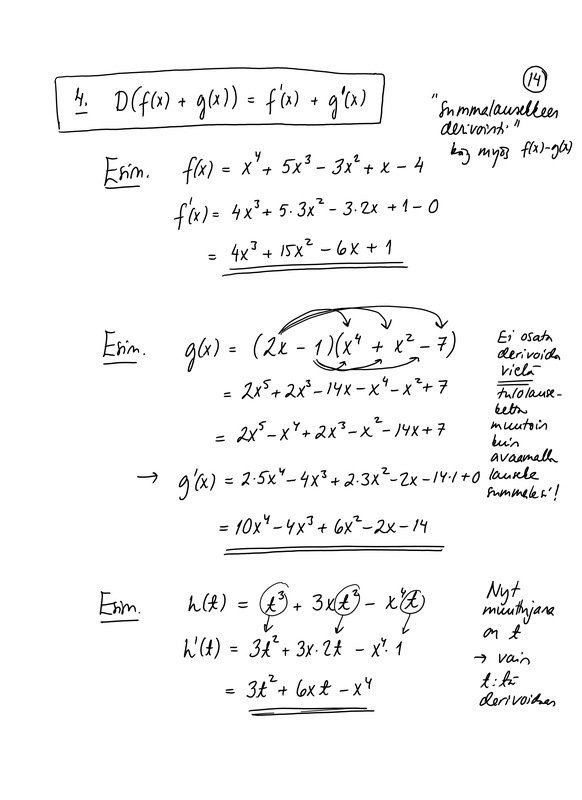 14
4. D(f(x) + g(x)) = f'(x) + g'(x)
"Summalausekkeen
derivointi"
koskee myös f(x)-g(x)
Esim. f(x) = x⁴ + 5x³ - 3x² + x - 4
f'(x) = 4x³ + 5·3x² - 3·2x + 1 - 0
= 4x³ + 15x² - 6x + 1
Esim. g(x) = (2x - 1)(x⁴ + x² - 7)
= 2x⁵ + 2x³ - 14x - x⁴ - x² + 7
= 2x⁵ - x⁴ + 2x³ - x² - 14x + 7
→ g'(x) = 2·5x⁴ - 4x³ + 2·3x² - 2x - 14·1 + 0
= 10x⁴ - 4x³ + 6x² - 2x - 14
Ei osata
derivoida
vielä
tulolause-
ketta
muutoin
kuin
avaamalla
lauseke
summaksi!
Esim. h(t) = t³ + 3xt² - x⁴t
h'(t) = 3t² + 3x·2t - x⁴·1
= 3t² + 6xt - x⁴
Nyt
muuttujana
on t
→ vain
t:tä
derivoidaan